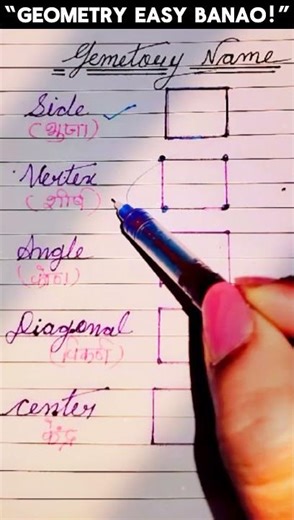 “GEOMETRY EASY BANAO!”
Gemetouy Name
Side
(भुजा)
Vertex
(शीर्ष)
Angle
(कोण)
Diagonal
(विकर्ण)
center
केंद्र